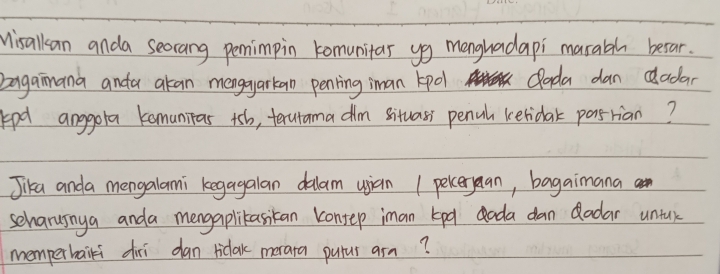 Misalkan anda seorang pemimpin komunitas yg menghadapi masalah besar.
bagaimana anda akan mengajarkan penting iman kpd Qada dan Qadar
kpd anggota komunitas tsb, terutama dlm situasi penuh ketidak pastian ?
Jika anda mengalami kegagalan dalam ujian / pekerjaan, bagaimana
seharusnya anda mengaplikasikan konsep iman kpd Qada dan Qadar untuk
memperbaiki diri dan tidak merasa putus asa ?